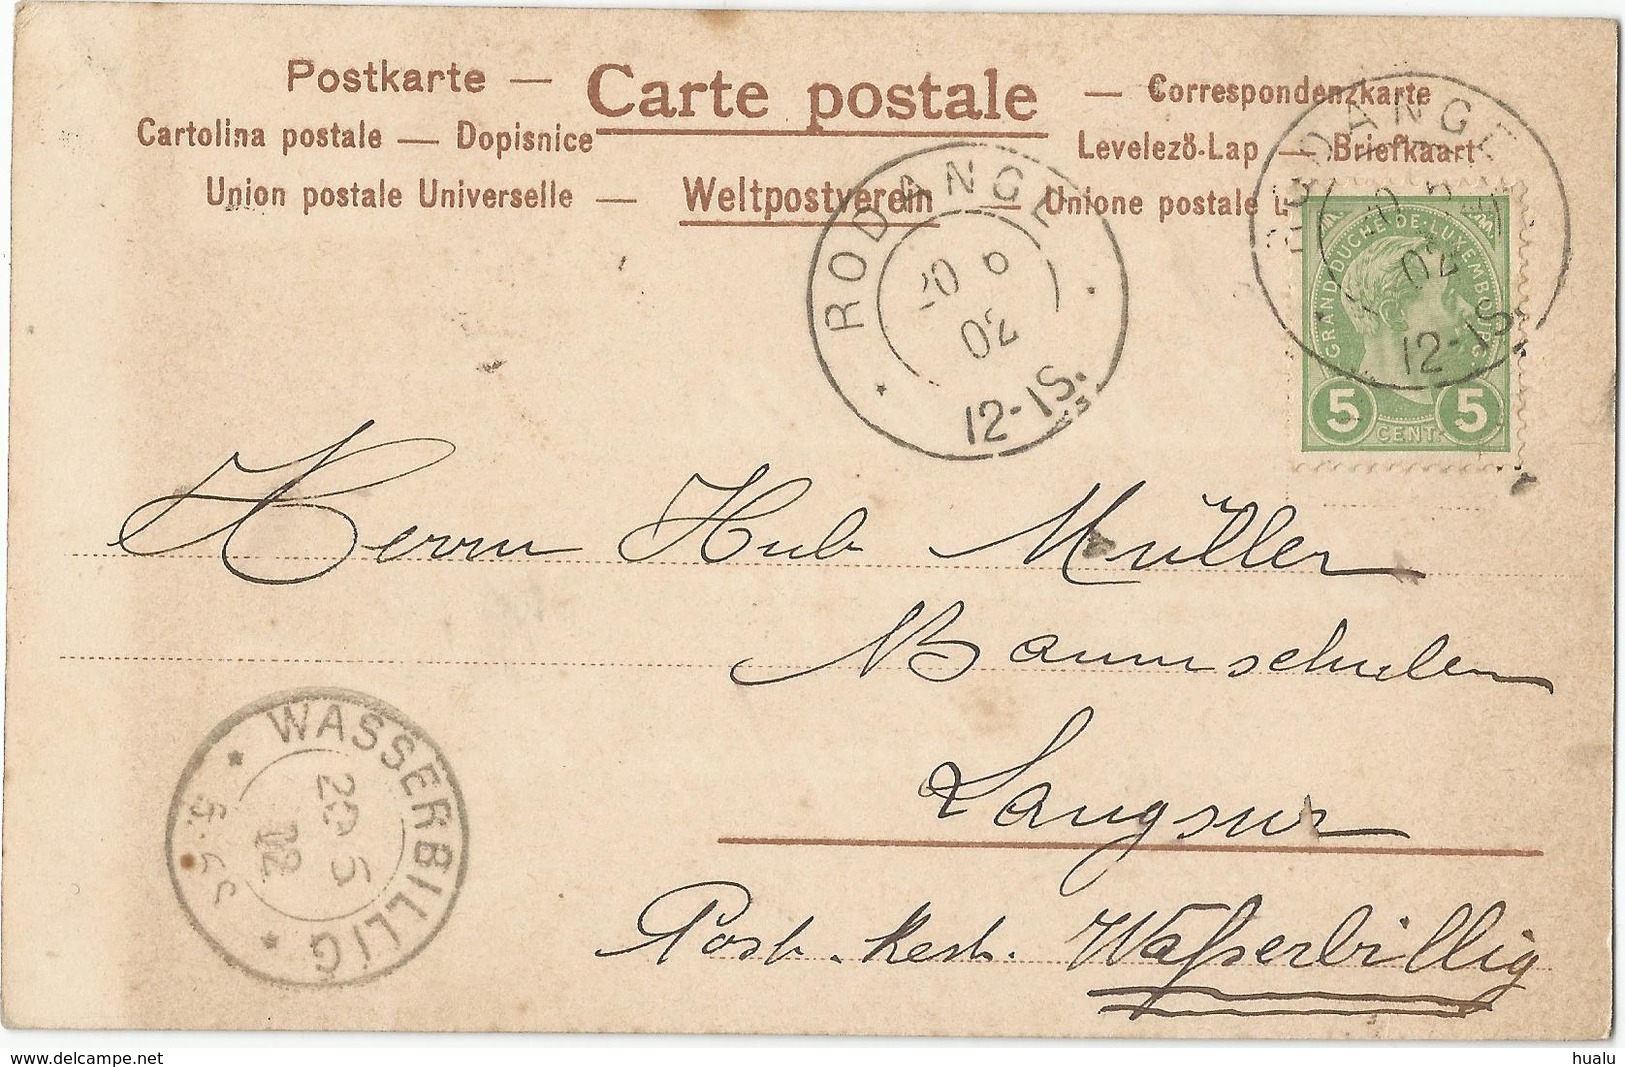 Postkarte — Carte postale — Correspondenzkarte
Cartolina postale — Dopisnice
Levelező-Lap — Briefkaart
Union postale Universelle — Weltpostverein — Unione postale u
RODANGE
20 5
02
12-1S.
RODANGE
20 5
02
12-1S.
GRAND DUCHÉ DE LUXEMBOURG
5 CENT. 5
Herrn Hub Müller
Baumschulen
Langsur
Post. Rest. Wasserbillig
WASSERBILLIG
20 5
02
5-6S
www.delcampe.net
hualu